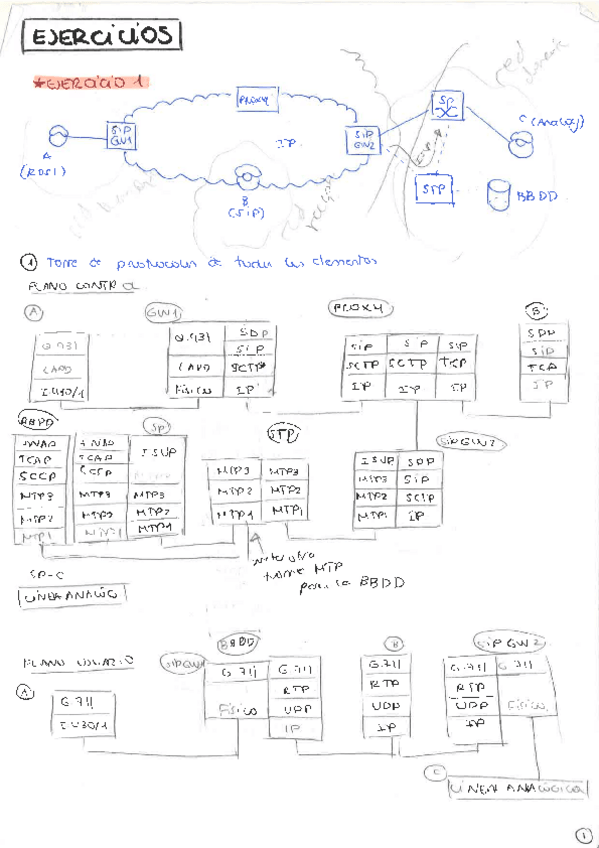 EJERCICIOS
★EJERCICIO 1
PROXY
SIP
GW1
IP
SIP
GW2
SP
A
(RDSI)
B
(SIP)
C (Analog)
STP
BBDD
red
red
① Torre de protocolos de todos los elementos
PLANO CONTROL
A
GW1
PROXY
B
Q.931
LAPD
I.430/1
Q.931
LAPD
Físico
SDP
SIP
SCTP
IP
SIP
SCTP
IP
SIP
SCTP
IP
SIP
TCP
IP
SDP
SIP
TCP
IP
BBDD
SP
STP
SIPGW2
INAP
TCAP
SCCP
MTP3
MTP2
MTP1
INAP
TCAP
SCCP
MTP3
MTP2
MTP1
ISUP
MTP3
MTP2
MTP1
MTP3
MTP2
MTP1
MTP3
MTP2
MTP1
ISUP
MTP3
MTP2
MTP1
SDP
SIP
SCTP
IP
torre MTP
para la BBDD
SP-C
LÍNEA ANALÓG
PLANO USUARIO
A
SIPGW1
BBDD
B
SIPGW2
G.711
I.430/1
G.711
Físico
G.711
RTP
UDP
IP
G.711
RTP
UDP
IP
G.711
RTP
UDP
IP
G.711
Físico
C
LÍNEA ANALÓGICA
1